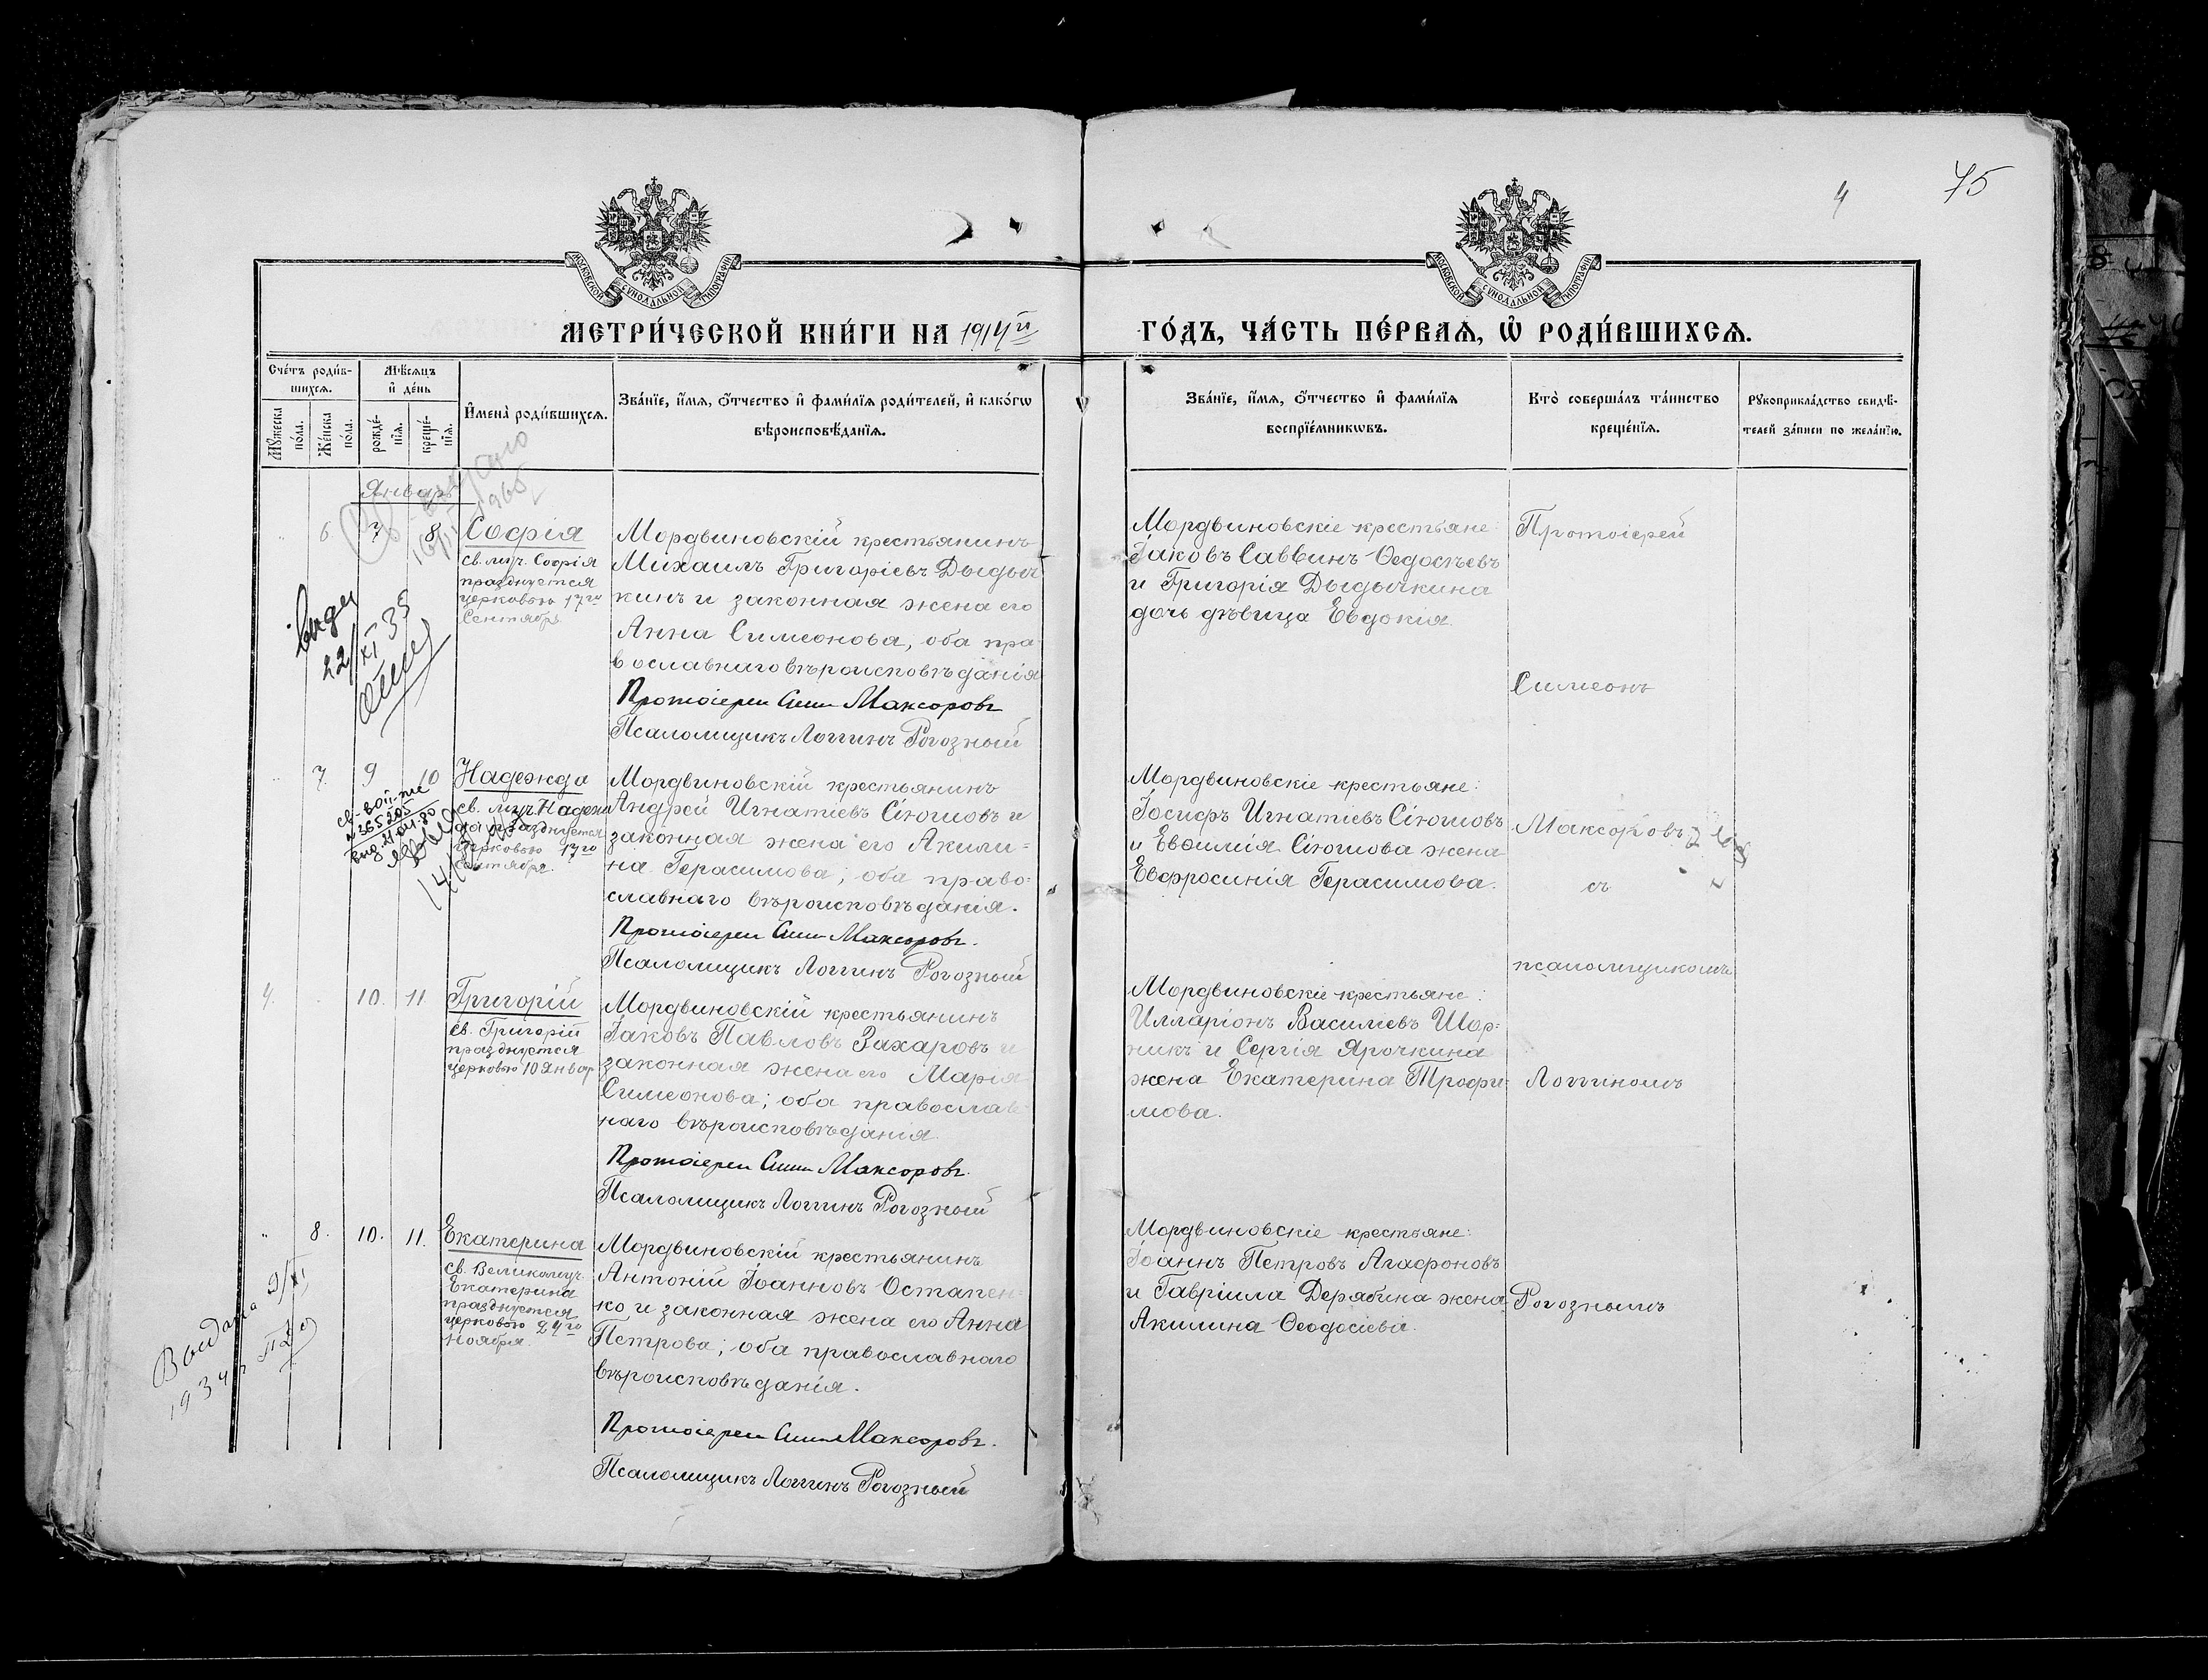 75
4
МОСКОВСКОЙ СѴНОДАЛЬНОЙ ТИПОГРАФІИ
МОСКОВСКОЙ СѴНОДАЛЬНОЙ ТИПОГРАФІИ
МЕТРИ́ЧЕСКОЙ КНИ́ГИ НА 1914й
ГО́ДЪ, ЧА́СТЬ ПЕ́РВАѦ, Ѡ҆ РОДИ́ВШИХСѦ.
Сче́тъ роди́в-
шихся.
Мѣ́сяцъ
и҆ де́нь
Мꙋ́жеска
по́ла.
Же́нска
по́ла.
рожде́-
нїѧ.
креще́-
нїѧ.
И҆мена̀ роди́вшихсѧ.
Зва́нїе, и҆́мѧ, ѻ҆́тчество и҆ фами́лїѧ роди́телей, и҆ како́гѡ
вѣроисповѣ́данїѧ.
Зва́нїе, и҆́мѧ, ѻ҆́тчество и҆ фами́лїѧ
воспрїе́мникѡвъ.
Кто̀ соверша́лъ та́инство
креще́нїѧ.
Рꙋкоприкла́дство свидѣ́-
телей за́писи по жела́нїю.
Январь
6 7 8
Софія
св. муч. Софія
празднуется
церковью 17го
Сентябр.
Мордвиновскій крестьянинъ
Михаилъ Григоріевъ Дыдыч
кинъ и законная жена его
Анна Симеонова, оба пра
вославнаго вѣроисповѣданія
Протоіерей Сим Максоровъ
Псаломщикъ Логгинъ Рогозный
Мордвиновскіе крестьяне:
Іаковъ Саввинъ Ѳедосѣевъ
и Григорія Дыдычкина
дочь дѣвица Евдокія.
Протоіерей
Симеонъ
1965
22/XI 35
7. 9 10
Надежда
св. муч. Надеж
да празднуется
церковью 17го
Сентября.
№ 365205
Мордвиновскій крестьянинъ
Андрей Игнатіевъ Сіюшовъ и
законная жена его Акили=
на Герасимова; оба право=
славнаго вѣроисповѣданія.
Протоіерей Сим Максоровъ.
Псаломщикъ Логгинъ Рогозный
Мордвиновскіе крестьяне:
Іосифъ Игнатіевъ Сіюшовъ
и Евѳимія Сіюшова жена
Евфросинія Герасимова.
Максоровъ
съ
псаломщикомъ
4. 10. 11.
Григорій
св. Григорій
празднуется
церковью 10 Январ
Мордвиновскій крестьянинъ
Іаковъ Павловъ Захаровъ и
законная жена его Марія
Симеонова; оба православ
наго вѣроисповѣданія.
Протоіерей Сим Максоровъ.
Псаломщикъ Логгинъ Рогозный
Мордвиновскіе крестьяне:
Илларіонъ Василіевъ Шор=
никъ и Сергія Ярочкина
жена Екатерина Трофи=
мова.
Логгиномъ
8. 10. 11.
Екатерина
св. Великомуч.
Екатерина
празднуется
церковью 24го
Ноября.
Выдана 9/XI
1934
Мордвиновскій крестьянинъ
Антоній Іоанновъ Остапен=
ко и законная жена его Анна
Петрова; оба православнаго
вѣроисповѣданія.
Протоіерей Сим Максоровъ.
Псаломщикъ Логгинъ Рогозный
Мордвиновскіе крестьяне:
Іоаннъ Петровъ Агафоновъ
и Гавріила Дерябина жена
Акилина Ѳеодосіева.
Рогознымъ